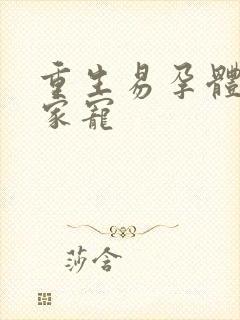 重生易孕體
家寵
莎含